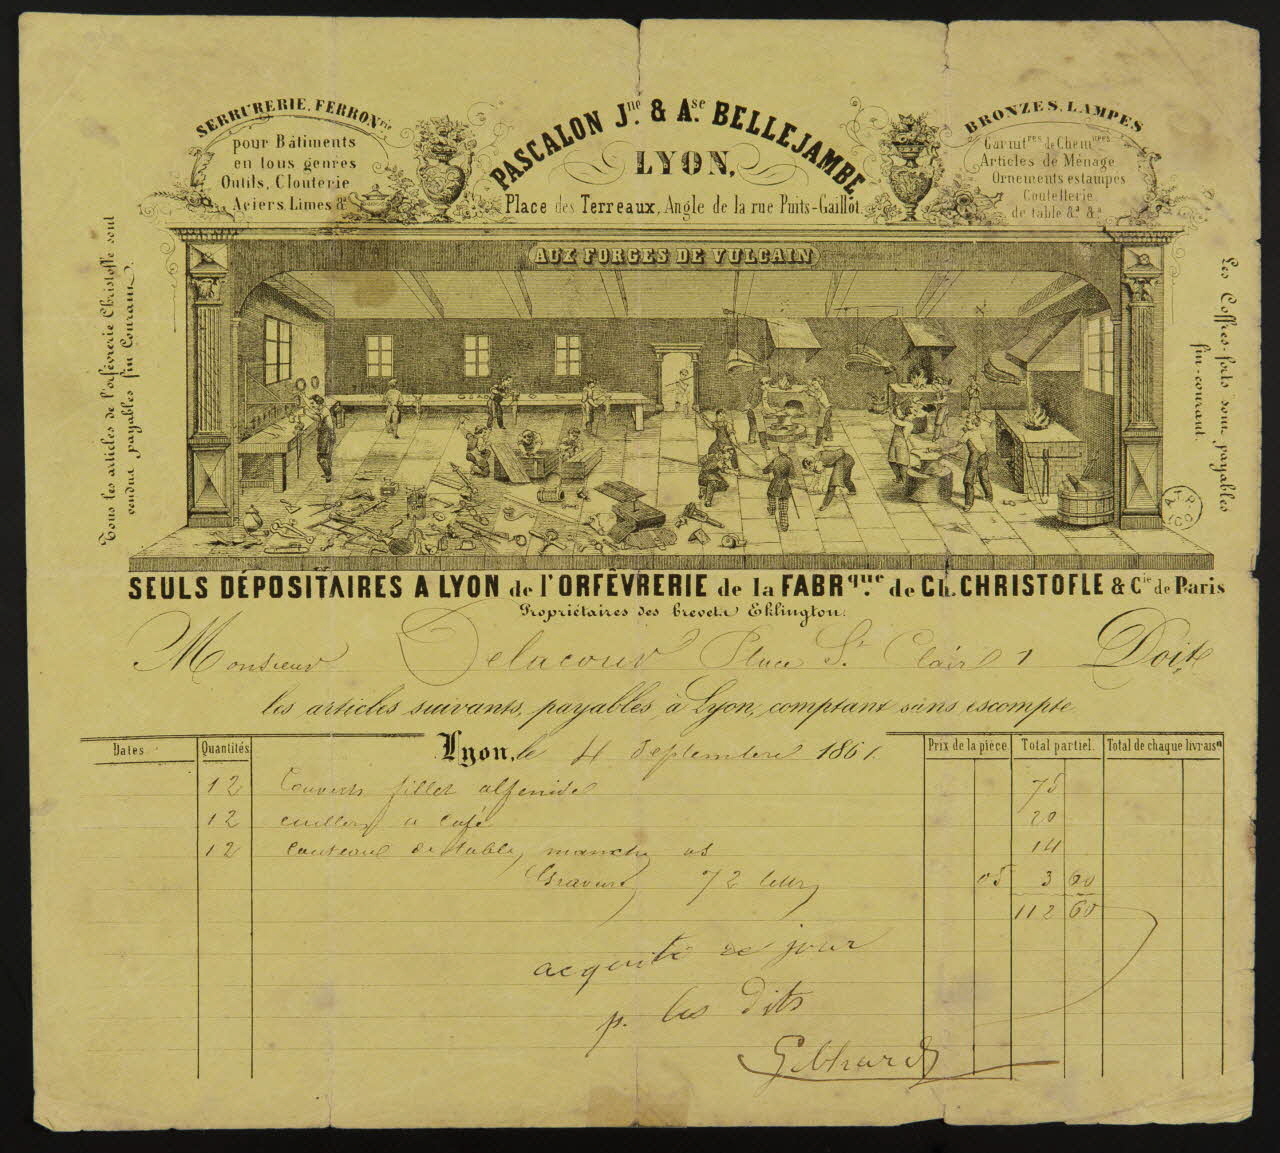 SERRURERIE, FERRONrie
pour Bâtiments
en tous genres
Outils, Clouterie
Aciers Limes &a
PASCALON Jne & Ase BELLEJAMBE
LYON,
Place des Terreaux, Angle de la rue Puits-Gaillot.
BRONZES, LAMPES
Garnitres de Chemnées
Articles de Ménage
Ornements estampés
Coutellerie
de table &a &a
Tous les articles de l'orfévrerie Christofle sont
vendus payables fin Courant.
AUX FORGES DE VULCAIN
Les Coffres-forts sont payables
fin-courant.
SEULS DÉPOSITAIRES A LYON de l'ORFÈVRERIE de la FABRque de Ch. CHRISTOFLE & Cie de Paris
Propriétaires des brevets Elklington.
Monsieur Delacour Place St Clair 1 Doit
les articles suivants, payables à Lyon, comptant sans escompte.
Dates Quantités Lyon, le 4 Septembre 1861. Prix de la pièce Total partiel. Total de chaque livraison
12 Couverts fillet alfenide 75
12 cuillers a café 20
12 Couteaux de table, manche os 14
Gravure 72 lettres 05 3 60
112 60
acquité ce jour
p. les dits
Gebhard